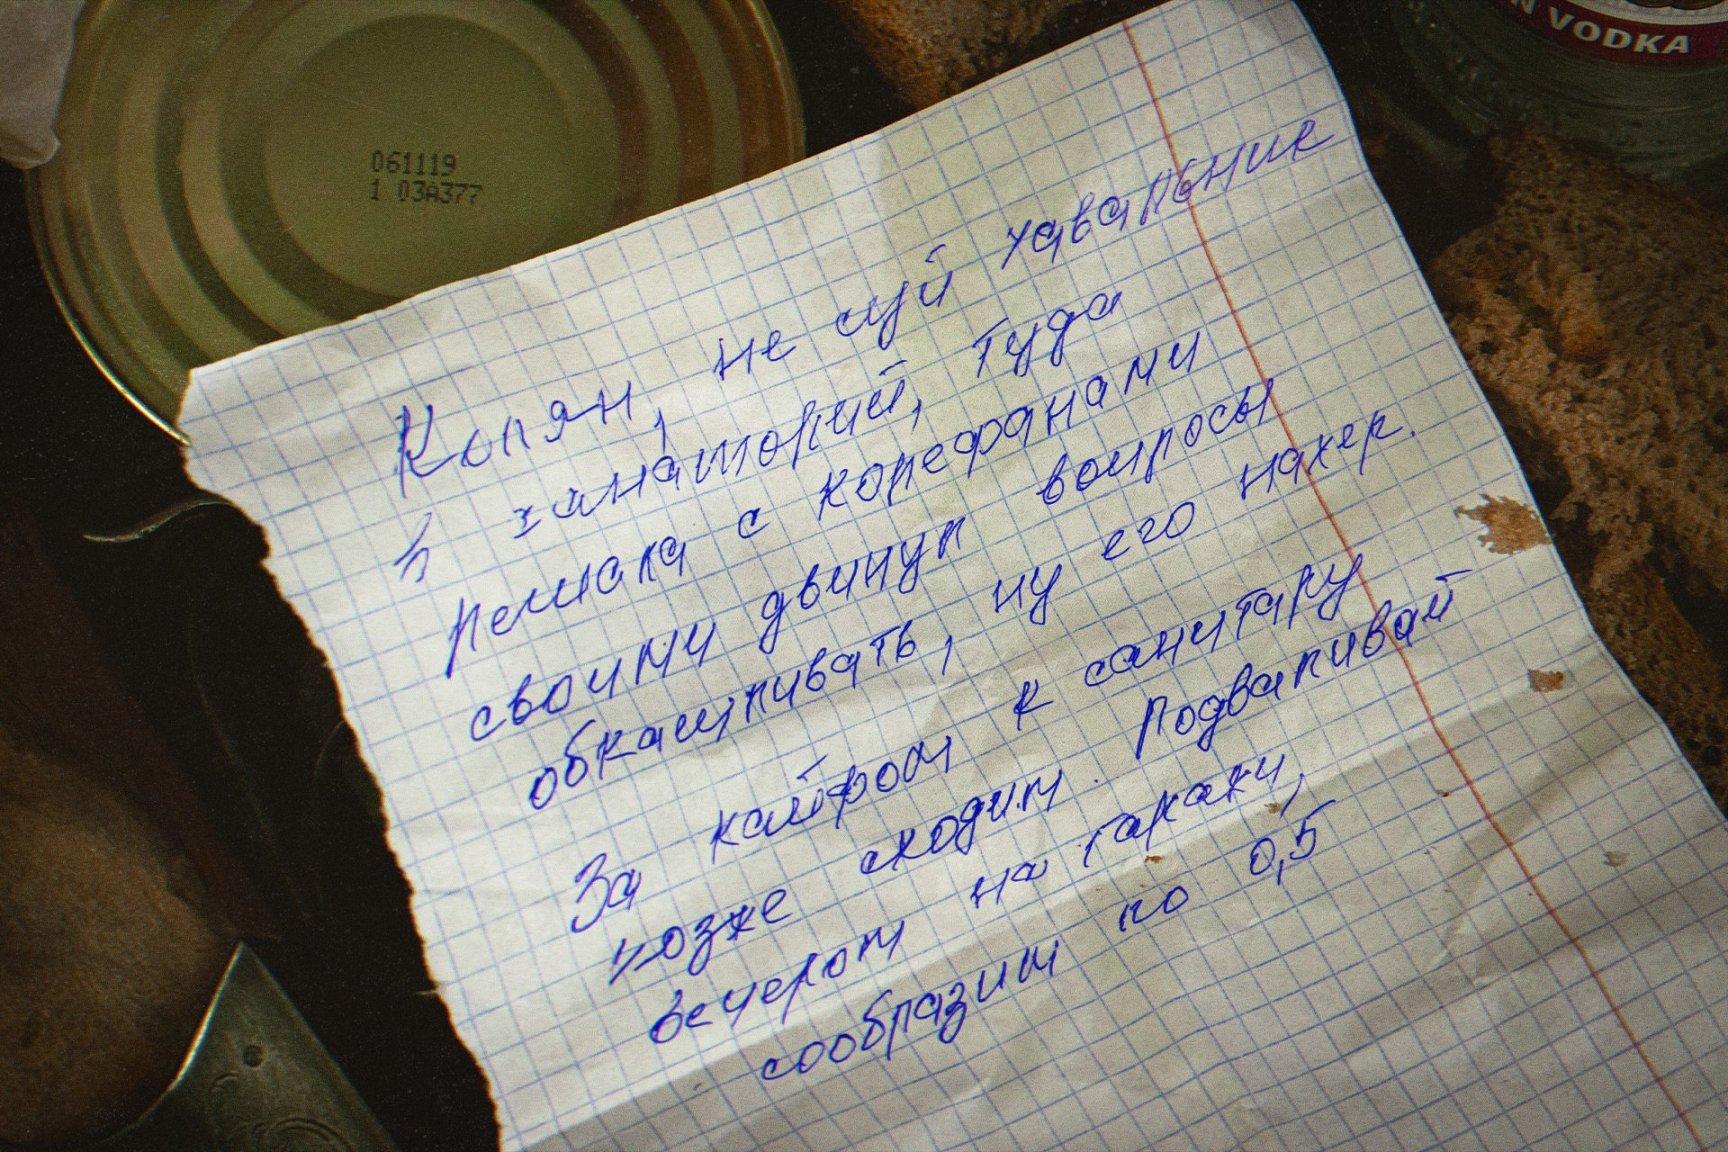 061119
1 03A377
N VODKA
Колян, не суй хавальник
в санаторий, туда
с корефанами
своими двинул вопросы
обкашливать, ну его нахер.
За кайфом к санитару
позже сходим. Подваливай
вечером на гаражи,
сообразим по 0,5